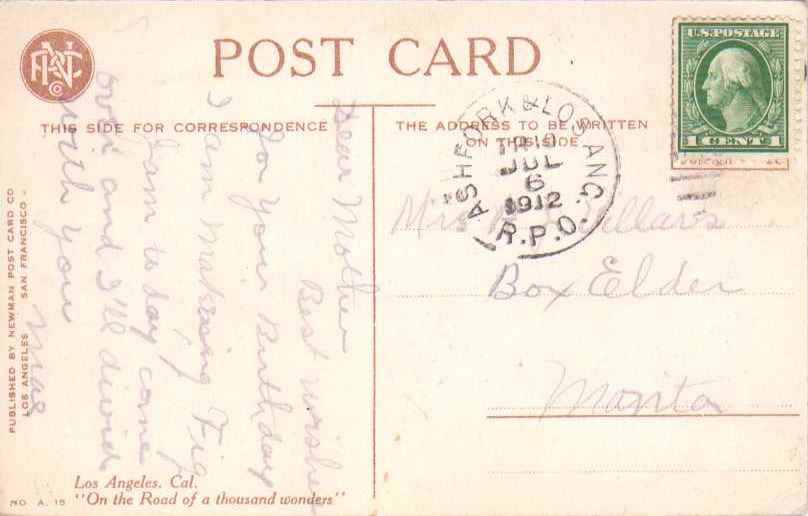 POST CARD
THIS SIDE FOR CORRESPONDENCE
THE ADDRESS TO BE WRITTEN
ON THIS SIDE
U.S. POSTAGE
1 CENT 1
ASH FORK & LOS ANG.
JUL
6
1912
R.P.O.
Dear Mother
Best wishes
for your Birthday
I am making Fig
Jam to day come
over and I'll divide
with you
Mae
Box Elder
Monta
PUBLISHED BY NEWMAN POST CARD CO
LOS ANGELES SAN FRANCISCO
NO. A. 15
Los Angeles, Cal.
"On the Road of a thousand wonders"